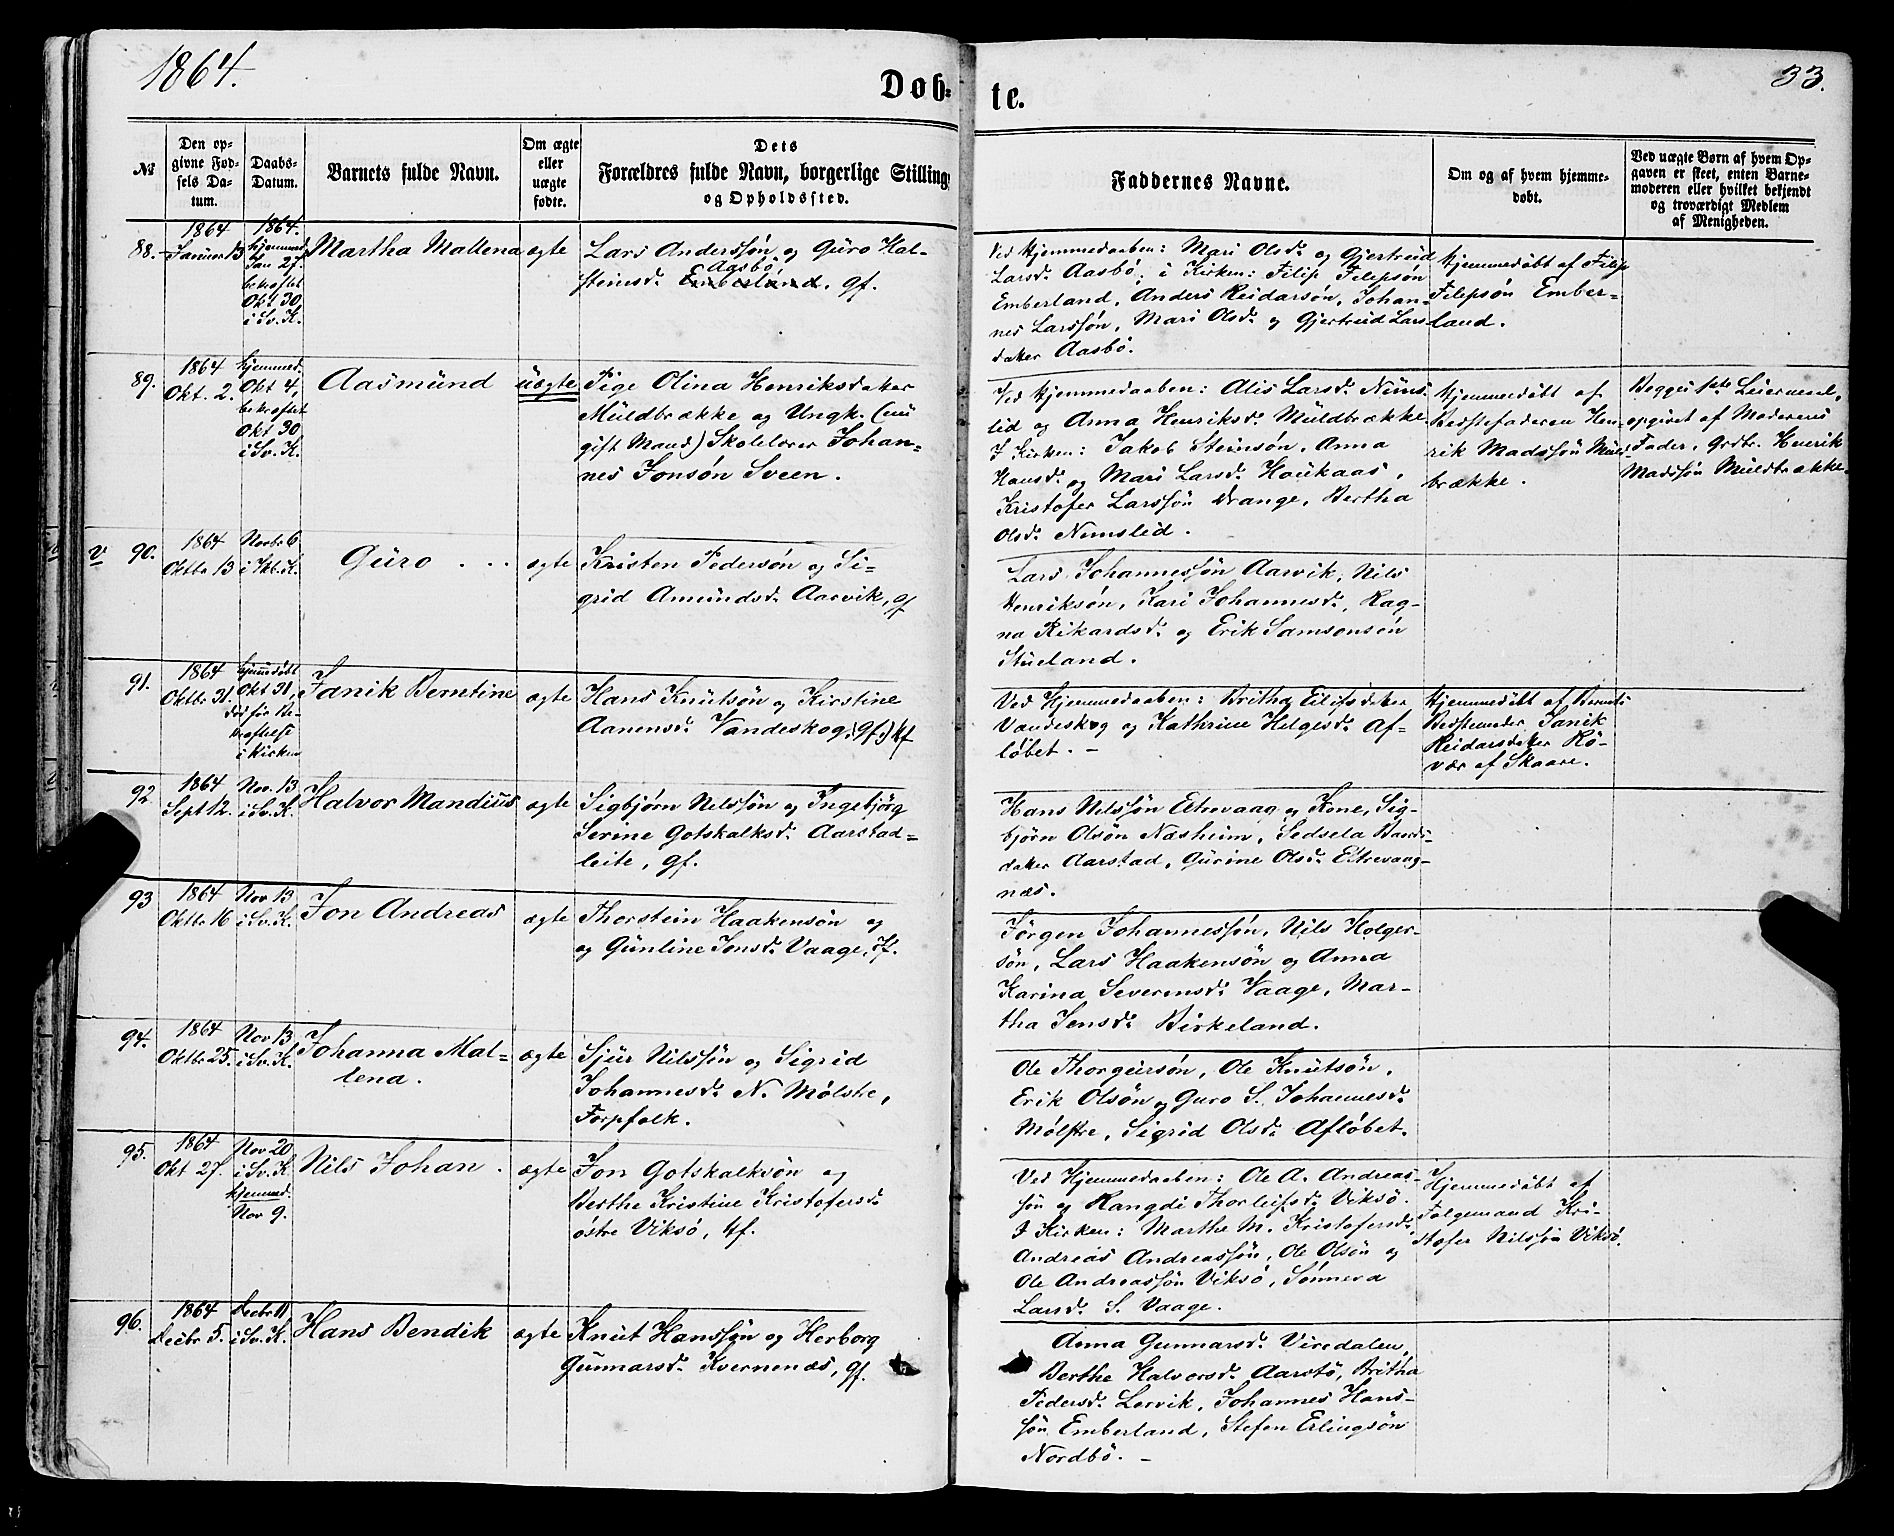 1864.
Dob-
te.
33.
№
Den op-
givne Fød-
sels Da-
tum.
Daabs-
Datum.
Barnets fulde Navn.
Om ægte
eller
uægte
fødte.
Dets
Forældres fulde Navn, borgerlige Stilling
og Opholdssted.
Faddernes Navne.
Om og af hvem hjemme-
døbt.
Ved uægte Børn af hvem Op-
gaven er skeet, enten Barne-
moderen eller hvilket bekjendt
og troværdigt Medlem
af Menigheden.
88.
1864
Januar 13
1864.
hjemmed.
Jan 27.
bekræftet
Okt 30,
i Sv. K.
Martha Mallena
ægte
Lars Anderssøn og Guro Hal-
Aasbø
steinsd. Emberland, gf.
Ved Hjemmedaaben: Mari Olsd. og Gjertrud
Larsd. Aasbø, i Kirken: Filip Filipsøn
Emberland, Anders Reidarsøn, Johan-
nes Larssøn, Mari Olsd. og Gjertrud Lars
datter Aasbø.
Hjemmedøbt af Filip
Filipsøn Ember-
land.
89.
1864
Okt. 2.
hjemmed.
Okt 4,
bekræftet
Okt 30
i Sv. K.
Aasmund
uægte
Pige Olina Henriksdatter
Muldbrække og Ungk. (nu
gift Mand) Skolelærer Johan-
nes Jonsøn Sveen.
Ved Hjemmedaaben: Alis Larsd. Nims-
lid og Anna Henriksd. Muldbrække
I Kirken: Jakob Steinsøn, Anna
Hansd. og Mari Larsd. Haukaas,
Kristofer Larssøn Vrange, Bertha
Olsd. Nemslid.
Hjemmedøbt af
Bedstefaderen Hen-
rik Madssøn Muld-
brække.
Begges 1ste Leiermaal,
opgivet af Moderens
Fader, grdbr. Henrik
Madssøn Muldbrække.
v
90.
1864
Oktbr 13
Novbr 6
Guro . . .
ægte
Kristen Pedersøn og Si-
grid Amundsd. Aarvik, gf
Lars Johannessøn Aarvik, Nils
Henriksøn, Kari Johannesd., Rag-
na Rikardsd. og Erik Samsonsøn
Stueland.
91.
1864
Oktbr 31
hjemmedøbt
Okt 31,
død før Be-
kræftelse
i Kirken
Janik Berntine
ægte
Hans Knutsøn og Kirstine
Aanensd. Vandeskog, (gf.) hf
Ved Hjemmedaaben: Britha Eilifsdatter
Vandeskog og Kathrine Helgesd. Af-
løbet. -
Hjemmedøbt af Barnets
Bedstemoder Janik
Reidarsdatter Rö-
vær af Skaare.
92
1864
Sept 12.
Nov. 13
i Sv. K.
Halvor Mandius
ægte
Sigbjørn Nilssøn og Ingebjørg
Serine Gotskalksd. Aarstad-
leite, gf.
Hans Nilssøn Eltrevaag og Kone, Sig-
bjørn Olsøn Næsheim, Sedsela Baards-
datter Aarstad, Gurine Olsd. Eltrevaag-
næs.
93
1864
Oktbr 16
Nov 13
i Sv. K.
Jon Andreas
ægte
Thorstein Haakensøn og
og Gunline Jonsd. Vaage, If.
Jørgen Johannessøn, Nils Holger-
søn, Lars Haakensøn og Anna
Karina Severinsd. Vaage, Mar-
tha Jensd. Birkeland.
94.
1864
Oktbr 25.
Nov 13
i Sv. K.
Johanna Mal-
lena.
ægte
Sjur Nilssøn og Sigrid
Johannesd. N. Mølstre,
Torpfolk.
Ole Thorgersøn, Ole Knutsøn,
Erik Olsøn og Guro S. Johannesd.
Mølstre, Sigrid Olsd. Afløbet.
95.
1864
Okt 27.
Nov 20
i Sv. K
hjemmed.
Nov 9.
Nils Johan .
ægte
Jon Gotskalksøn og
Berthe Kristine Kristofersd.
østre Viksø, hf.
Ved Hjemmedaaben: Ole A. Andreas-
søn og Rangdi Thorleifsd. Viksø.
I Kirken: Marthe M. Kristofersd.
Andreas Andreassøn, Ole Olsøn og
Ole Andreassøn Viksø, Sønneva
Larsd. S. Vaage.
Hjemmedøbt af
Følgemand Kri-
stofer Nilssøn Viksø.
96.
1864
Decbr 5.
Decbr 11
i Sv. K.
Hans Bendik
ægte
Knut Hanssøn og Herborg
Gunnarsd. Kvernenæs, gf.
Anna Gunnarsd. Viredalen,
Berthe Halvorsd. Aarstø, Britha
Pedersd. Lervik, Johannes Hans-
søn Emberland, Stefen Erlingsøn
Nordbø. -